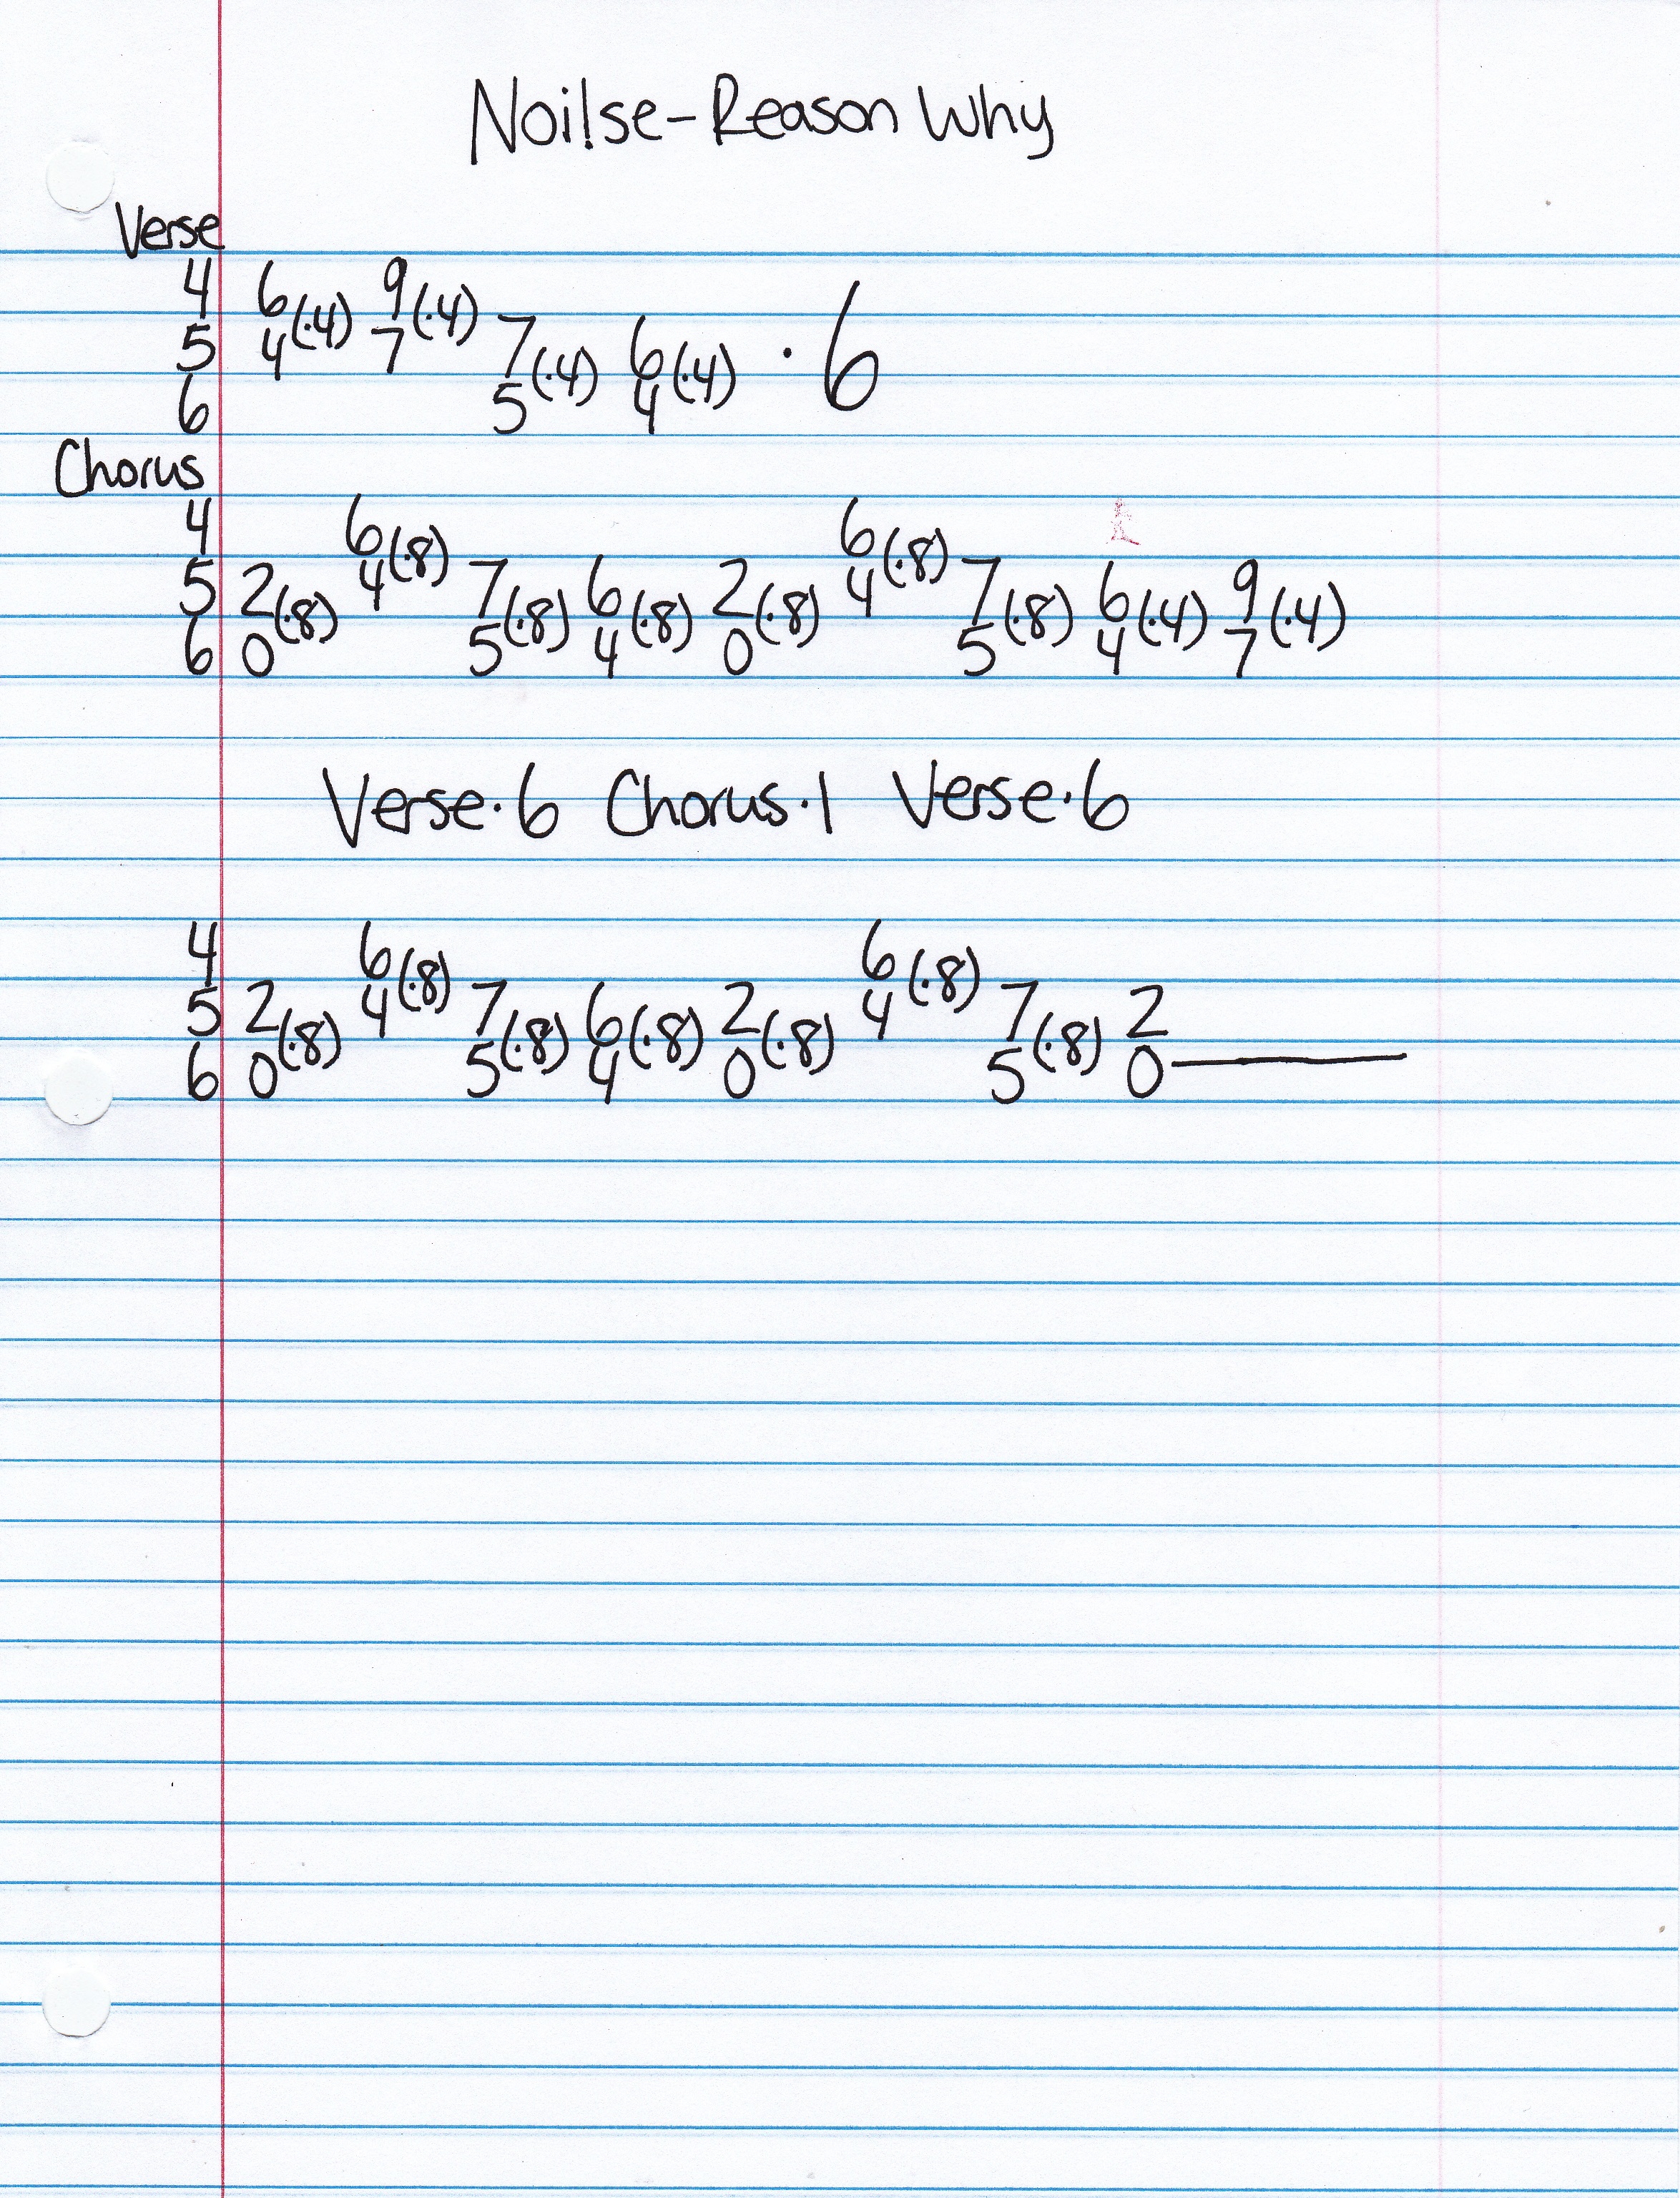 Noi!se-Reason Why
Verse
4 6 9
5 4(·4) 7(·4) 7 6 · 6
6 5(·4) 4(·4)
Chorus
4 6 6
5 2 4(·8) 7 6 2 4(·8) 7 6 9
6 0(·8) 5(·8) 4(·8) 0(·8) 5(·8) 4(·4) 7(·4)
Verse·6 Chorus·1 Verse·6
4 6 6
5 2 4(·8) 7 6 2 4(·8) 7 2
6 0(·8) 5(·8) 4(·8) 0(·8) 5(·8) 0